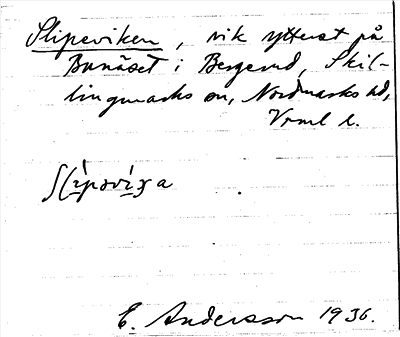 Slipeviken, vik ytterst på
Bunäset i Bergerud, Skil-
lingmarks sn, Nordmarks hd,
Vrml l.
E. Andersson 1936.